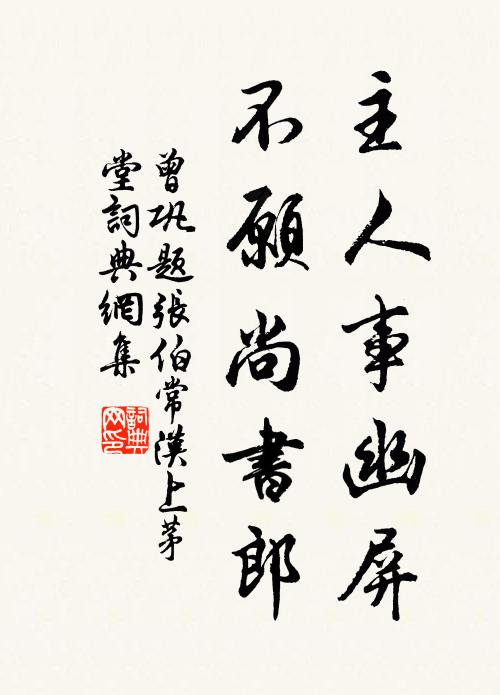 主人事幽屏
不願尚書郎
曾巩題張伯常漢上茅
堂詞典網集
詞典网印